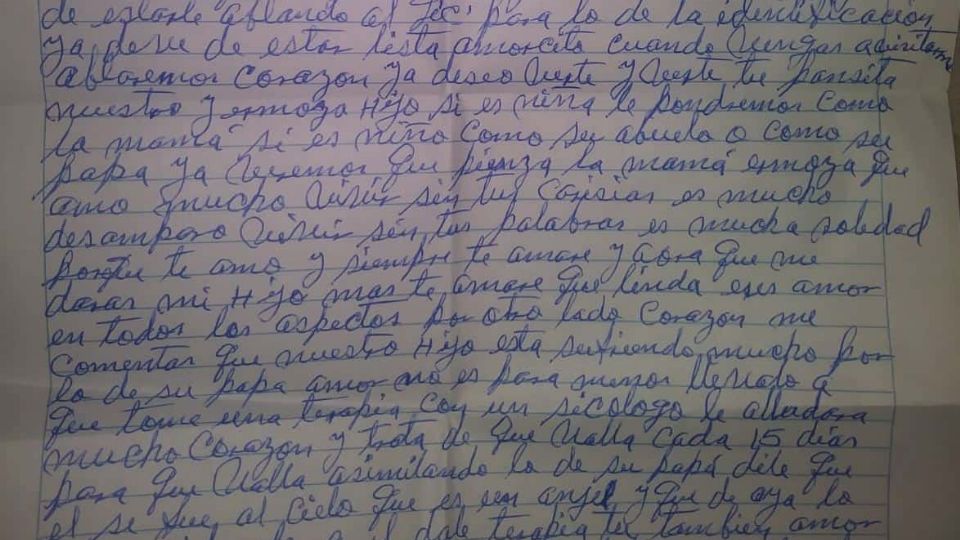 de estarle ablando al Lec. para lo de la identificación
ya deve de estar lista amorcito cuando vengas a visitarme
ablaremos corazon ya deseo verte y verte tu pansita
nuestro y ermoza Hijo si es niña le pondremos como
la mamá si es niño como su abuelo o como su
papa ya veremos que pienza la mamá ermoza que
amo mucho vivir sin tus carisias es mucho
desamparo vivir sin tus palabras es mucha soledad
porque te amo y siempre te amare y aora que me
daras mi Hijo mas te amare que linda eres amor
en todos los aspectos por otro lado corazon me
comentas que nuestro Hijo esta sufriendo mucho por
lo de su papa amor no es para menos llevalo a
que tome una terapia con un sicologo le alludara
mucho corazon y trata de que valla cada 15 días
para que valla asimilando lo de su papá dile que
el se fue al cielo que es un anjel y que de aya lo
terapia tu tambien amor